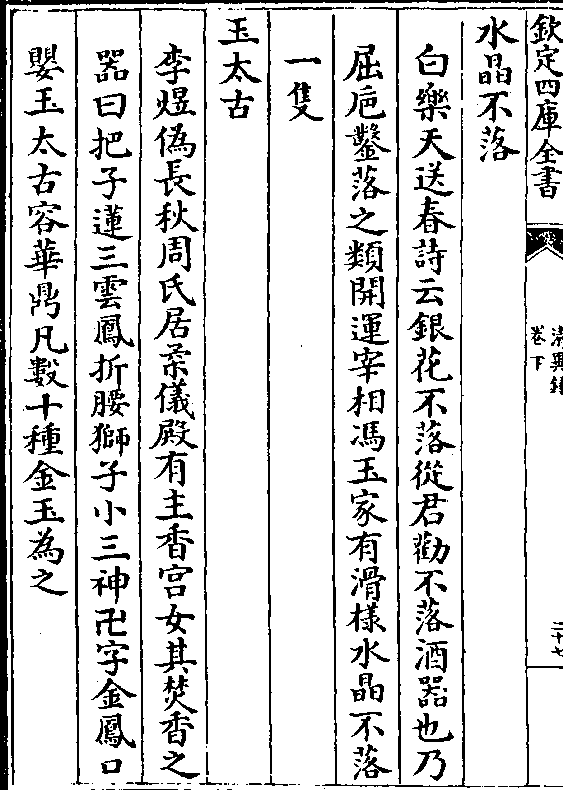 欽定四庫全書
清異錄
卷下
二十七
水晶不落
白樂天送春詩云銀花不落從君勸不落酒器也乃
屈巵鑿落之類開運宰相馮玉家有滑様水晶不落
一隻
玉太古
李煜偽長秋周氏居柔儀殿有主香宫女其焚香之
器曰把子蓮三雲鳳折腰獅子小三神卍字金鳳口
罌玉太古容華鼎凡數十種金玉為之